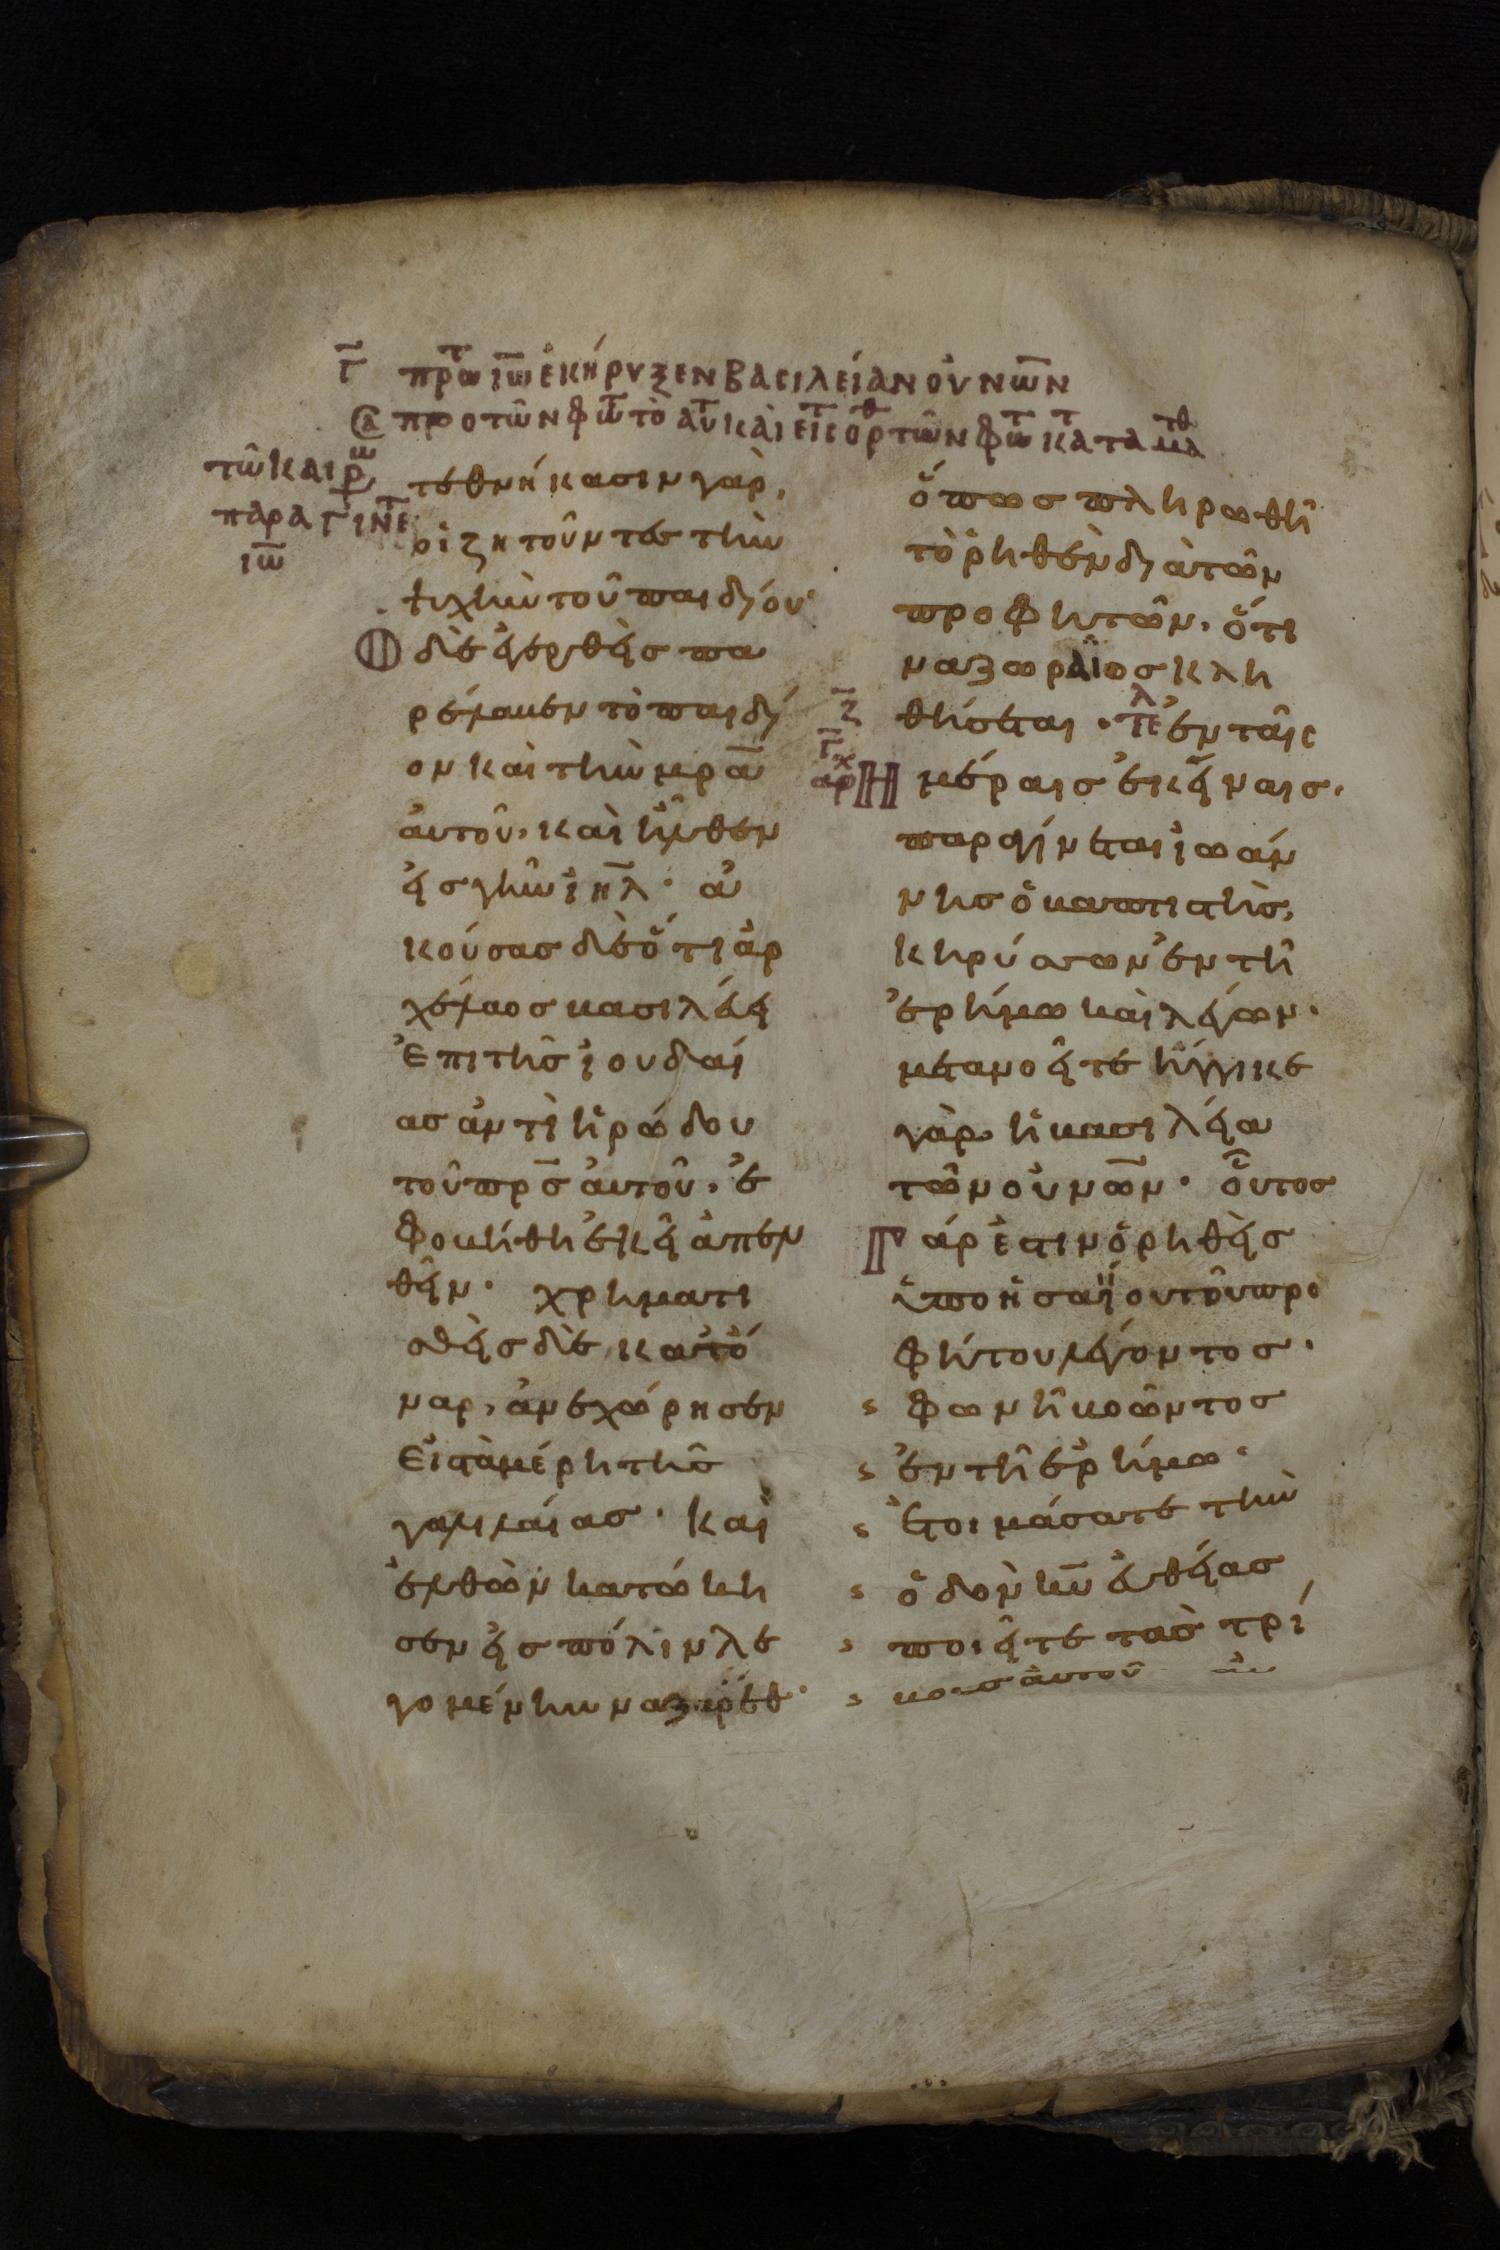 Γ̅ πρω̅τ ιω̅ ἐκήρυξεν βασιλείαν οὐνω̅ν
Σα προτῶν φώτ τὸ αὐτ καὶ εἰς τ ὀρθ τῶν φώτ κατὰ μα̅τθ
τῶ καιρῶ
παραγίνετ
ιω̅
τεθνήκασιν γὰρ,
οἱ ζητοῦντες τὴν
ψυχὴν τοῦ παιδίου·
Ὁ δὲ ἐγερθεὶς πα
ρέλαβεν τὸ παιδί
ον καὶ τὴν μρ̅α
αὐτοῦ, καὶ ἦλθεν
εἰς γῆν ἰη̅λ· ἀ
κούσας δὲ ὅτι ἀρ
χέλαος βασιλεύει
ἐπι τῆς ἰουδαί
ας ἀντὶ ἡρώδου
τοῦ πρ̅ς αὐτοῦ, ἐ
φοβήθη ἐκεῖ ἀπελ
θεῖν· χρηματι
σθεὶς δὲ κατ᾽ ὄ
ναρ, ἀνεχώρησεν
εἰς τὰ μέρη τῆς
γαλιλαίας· καὶ
ἐλθὼν κατώκη
σεν εἰς πόλιν λε
γομένην ναζαρέθ·
ὅπως πληρωθῆ
τὸ ῥηθὲν διὰ τῶν
προφητῶν, ὅτι
ναζωραῖος κλη
Ζ̅ θήσεται· τελ ἐν ταῖς
Γ̅ αρχ Ἡμέραις ἐκείναις,
παραγίνεται ἰωάν
νης ὁ βαπτιστὴς,
κηρύσσων ἐν τῆ
ἐρήμω καὶ λέγων·
μετανοεῖτε ἤγγικε
γὰρ ἡ βασιλεία
τῶν οὐνω̅ν· οὗτος
Γάρ ἐστιν ὁ ῥηθεὶς
ὑπο ἠσαΐου τοῦ προ
φήτου λέγοντος·
φωνὴ βοῶντος
ἐν τῆ ἐρήμω·
ἑτοιμάσατε τὴν
ὁδὸν κυ̅ εὐθείας
ποιεῖτε τὰς τρί
βους αὐτοῦ αυ